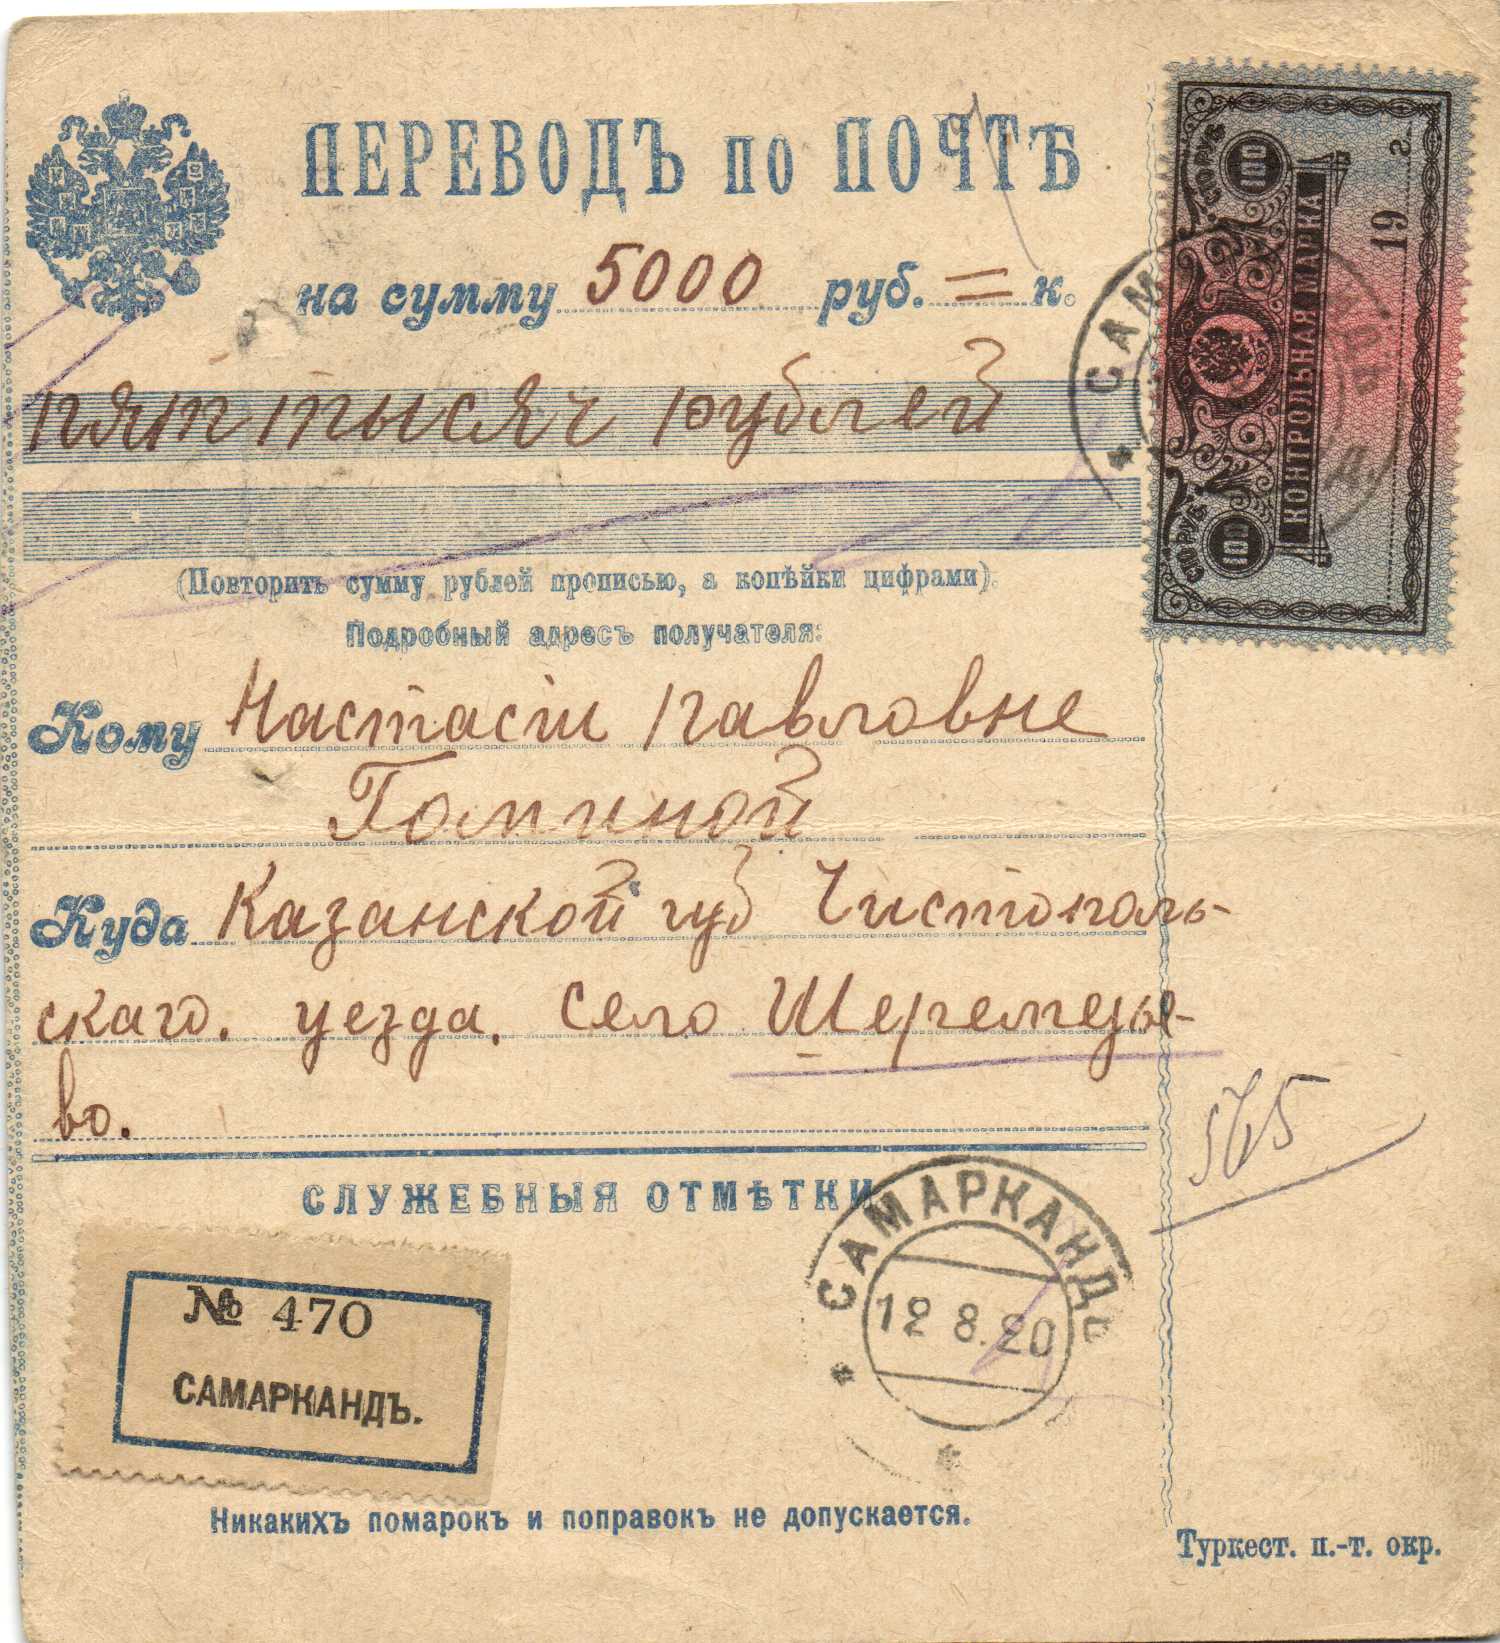 ПЕРЕВОДЪ ПО ПОЧТѢ
на сумму 5000 руб. = к.
пять тысяч рублей
(Повторить сумму рублей прописью, а копѣйки цифрами).
Подробный адресъ получателя:
Кому Настасіи Павловне
Гоминой
Куда Казанской губ Чистополь-
скаго. уезда. село
во.
565
СЛУЖЕБНЫЯ ОТМѢТКИ
№ 470
САМАРКАНДЪ.
САМАРКАНДЪ
12 8.20
Никакихъ помарокъ и поправокъ не допускается.
Туркест. п.-т. окр.
СТО РУБ.
100
КОНТРОЛЬНАЯ МАРКА
19 г.
СТО РУБ.
100